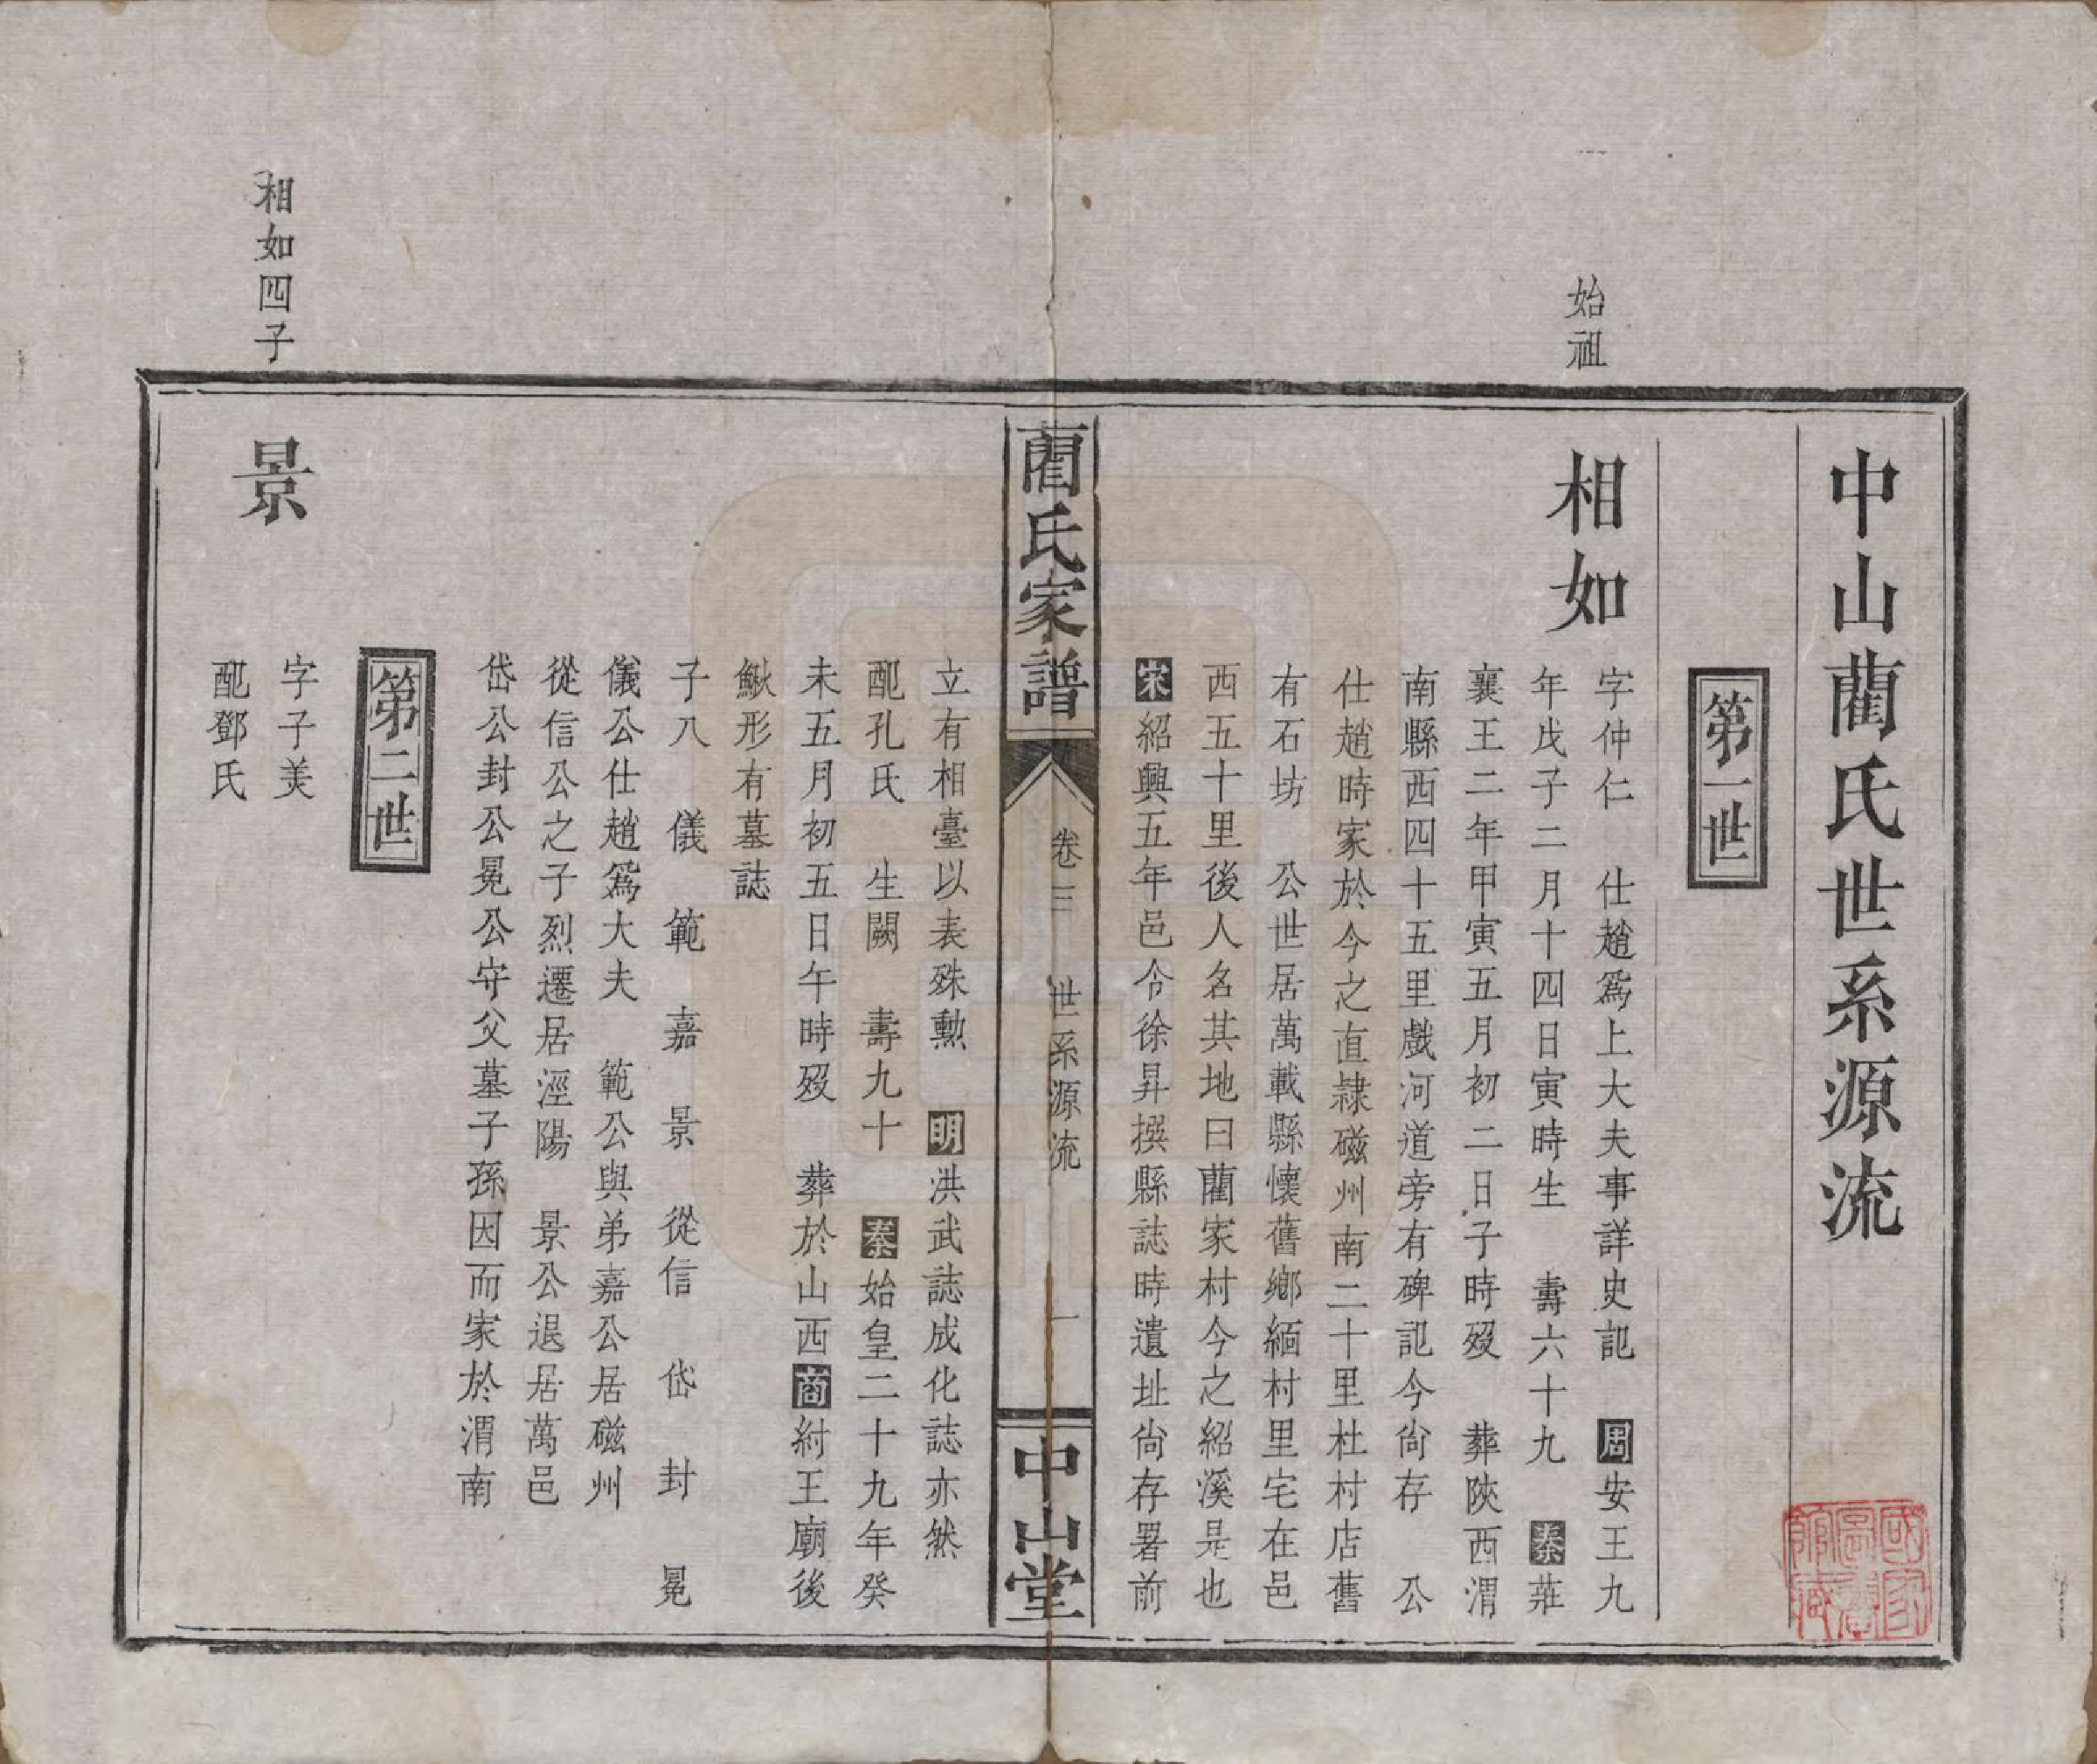 中山藺氏世系源流
第一世
始祖
相如
字仲仁　仕趙爲上大夫事詳史記　周安王九
年戊子二月十四日寅時生　壽六十九　秦莊
襄王二年甲寅五月初二日子時歿　葬陝西渭
南縣西四十五里戲河道旁有碑記今尙存　公
仕趙時家於今之直隷磁州南二十里杜村店舊
有石坊　公世居萬載縣懷舊鄉緬村里宅在邑
西五十里後人名其地曰藺家村今之紹溪是也
宋紹興五年邑令徐昇撰縣誌時遺址尙存署前
藺氏家譜
卷三　世系源流　一
中山堂
立有相臺以表殊勲　明洪武誌成化誌亦然
配孔氏　生闕　壽九十　秦始皇二十九年癸
未五月初五日午時歿　葬於山西商紂王廟後
鰍形有墓誌
子八　儀　範　嘉　景　從信　岱　封　冕
儀公仕趙爲大夫　範公與弟嘉公居磁州
從信公之子烈遷居涇陽　景公退居萬邑
岱公封公冕公守父墓子孫因而家於渭南
第二世
相如四子
景
字子美
配鄧氏